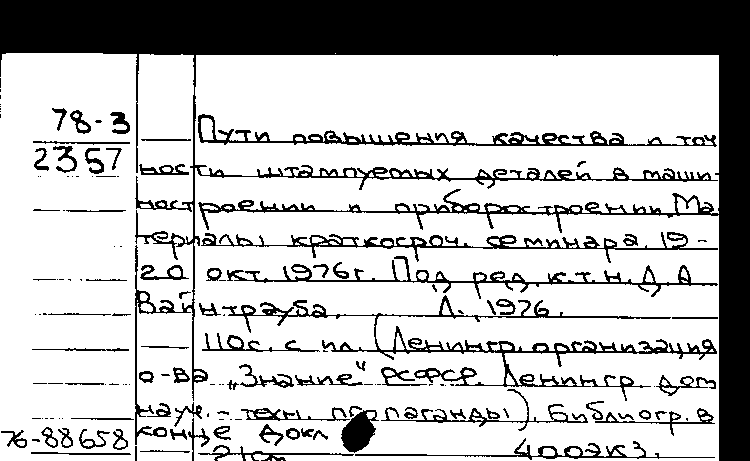 78-3
2357
Пути повышения качества и точ
ности штампуемых деталей в маши-
ностроении и приборостроении. Ма-
териалы краткосроч. семинара. 19-
20 окт. 1976г. Под ред. к.т.н. Д А
Вайнтрауба. Л., 1976.
110с. с ил. (Ленингр. организация
о-ва „Знание" РСФСР. Ленингр. дом
науч.-техн. пропаганды). Библиогр. в
76-88658 конце докл
21см 400экз.